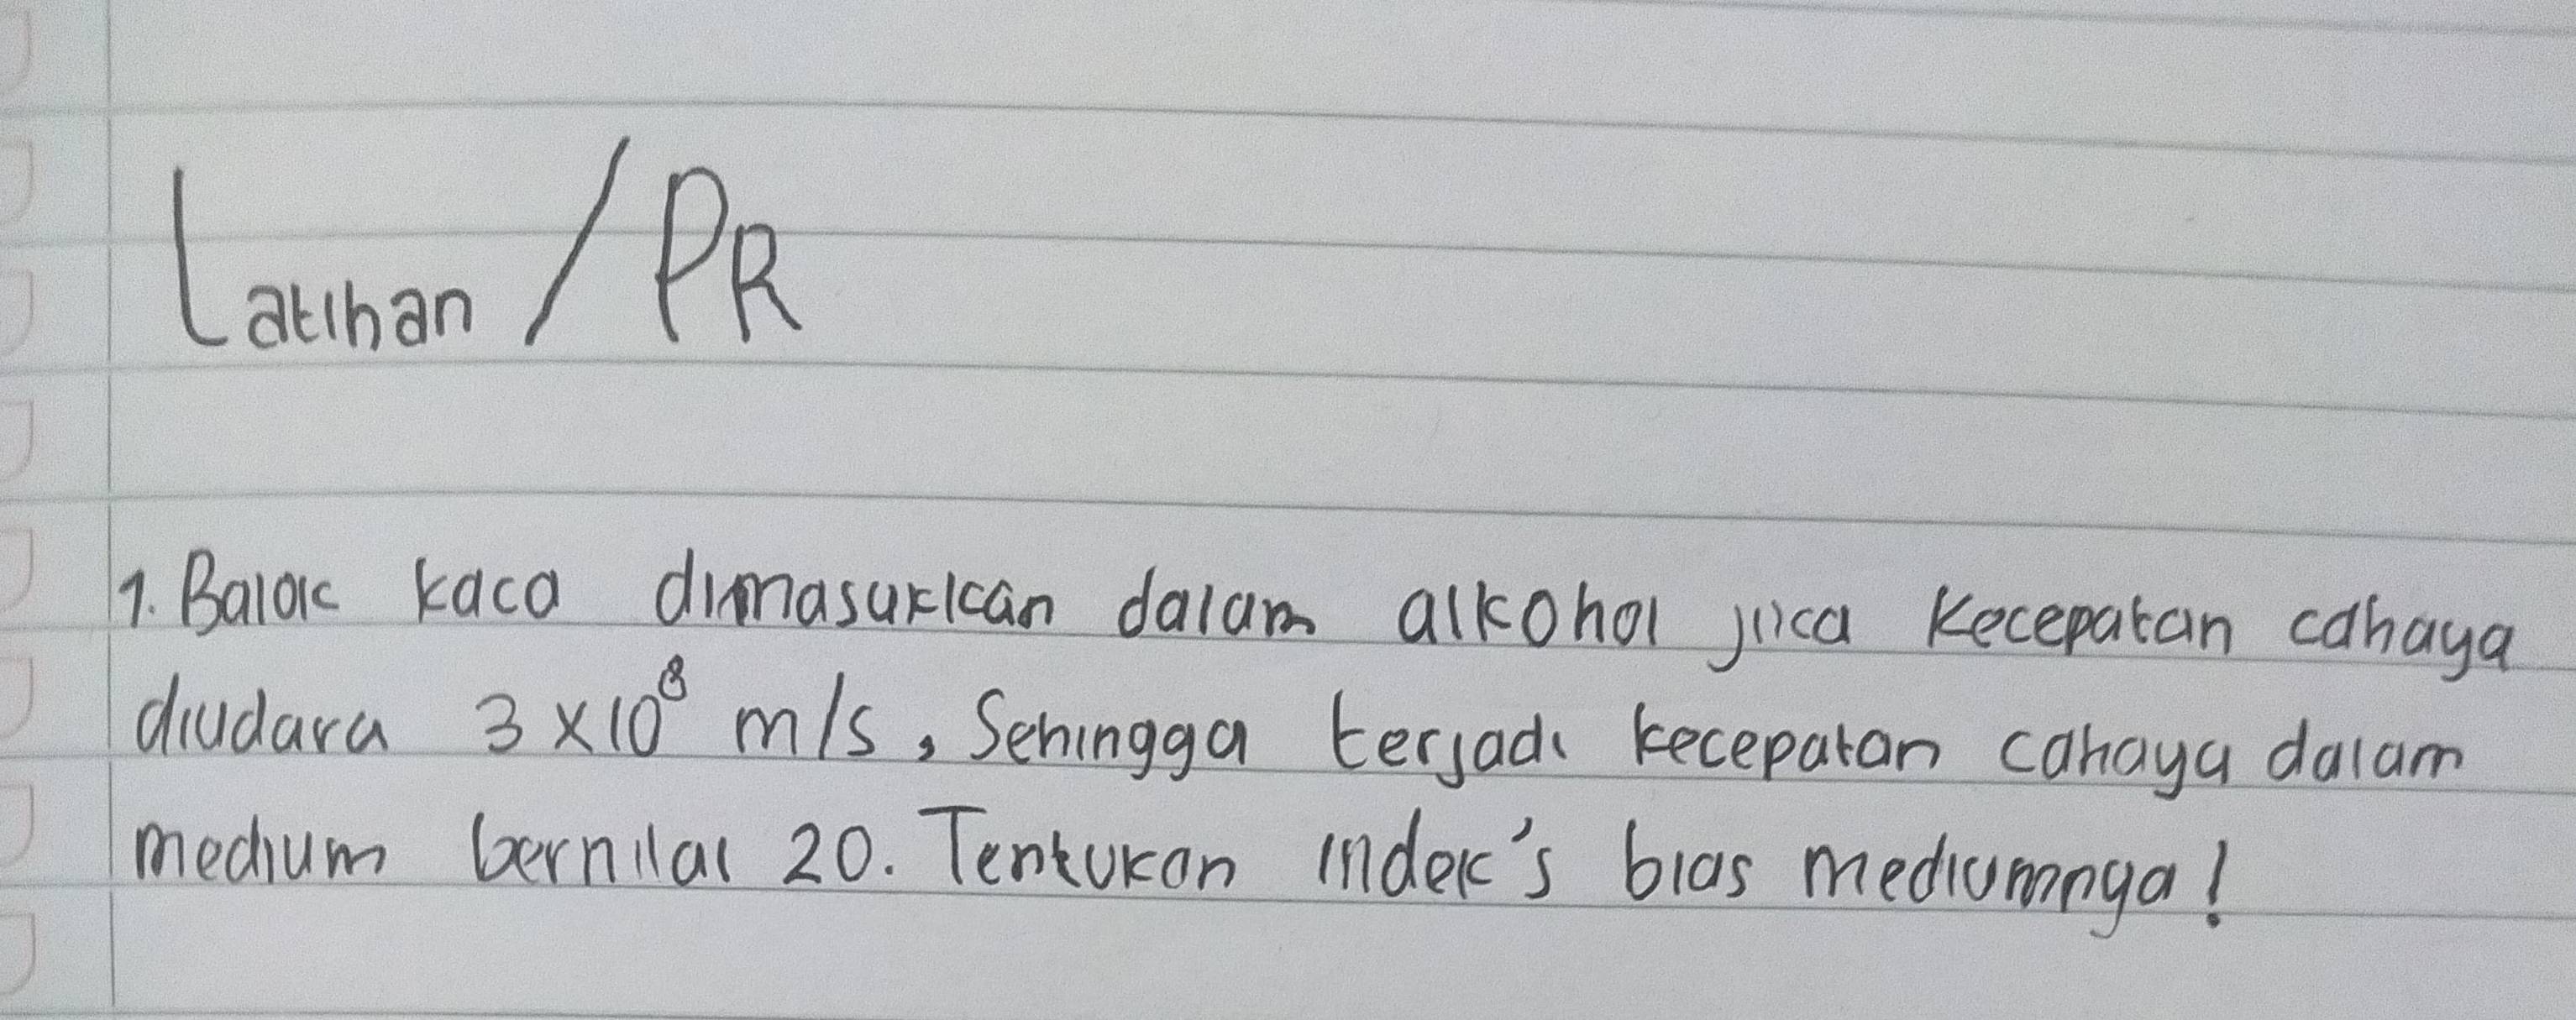 Latihan / PR
1. Balok kaca dimasukkan dalam alkohol jika kecepatan cahaya
diudara 3 x 10⁸ m/s, Sehingga terjadi kecepatan cahaya dalam
medium bernilai 20. Tentukan indek's bias mediumnya!